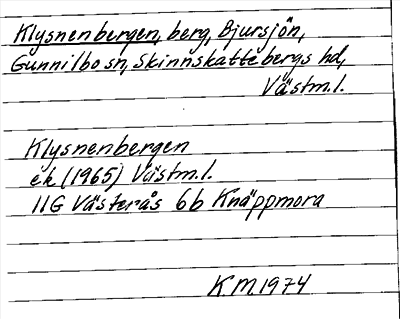 Klysnenbergen, berg, Bjursjön,
Gunnilbo sn, Skinnskattebergs hd,
Västm.l.
Klysnenbergen
ek (1965) Västm.l.
11G Västerås 6b Knäppmora
KM 1974